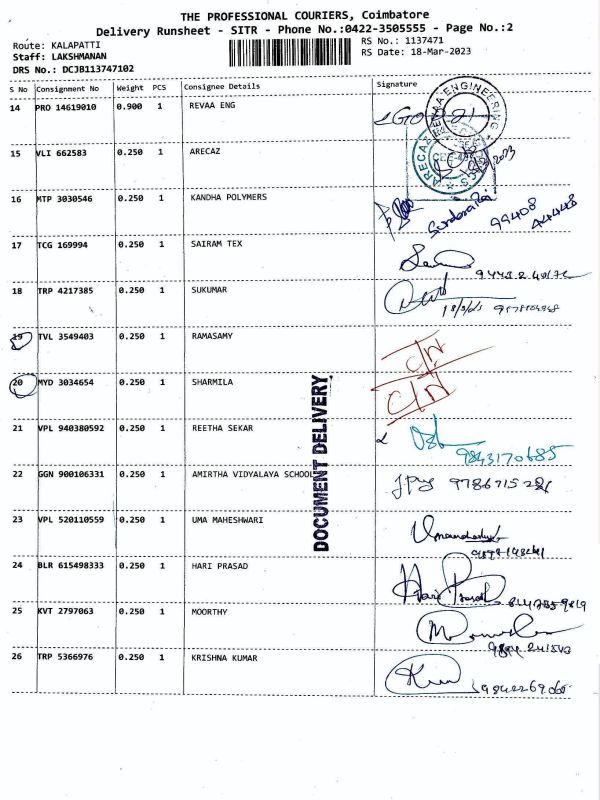 THE PROFESSIONAL COURIERS, Coimbatore
Delivery Runsheet - SITR - Phone No.:0422-3505555 - Page No.:2
Route: KALAPATTI
Staff: LAKSHMANAN
DRS No.: DCJB113747102
RS No.: 1137471
RS Date: 18-Mar-2023
S No Consignment No Weight PCS Consignee Details Signature
14 PRO 14619010 0.900 1 REVAA ENG
REVAA ENGINEERING
15 VLI 662583 0.250 1 ARECAZ
ARECAZ
16 MTP 3030546 0.250 1 KANDHA POLYMERS
99408
17 TCG 169994 0.250 1 SAIRAM TEX
18 TRP 4217385 0.250 1 SUKUMAR
19 TVL 3549403 0.250 1 RAMASAMY C/N
20 MYD 3034654 0.250 1 SHARMILA C/N
DOCUMENT DELIVERY
21 VPL 940380592 0.250 1 REETHA SEKAR
9843170685
22 GGN 900106331 0.250 1 AMIRTHA VIDYALAYA SCHOOL
23 VPL 520110559 0.250 1 UMA MAHESHWARI
24 BLR 615498333 0.250 1 HARI PRASAD Hari Prasad
25 KVT 2797063 0.250 1 MOORTHY
26 TRP 5366976 0.250 1 KRISHNA KUMAR